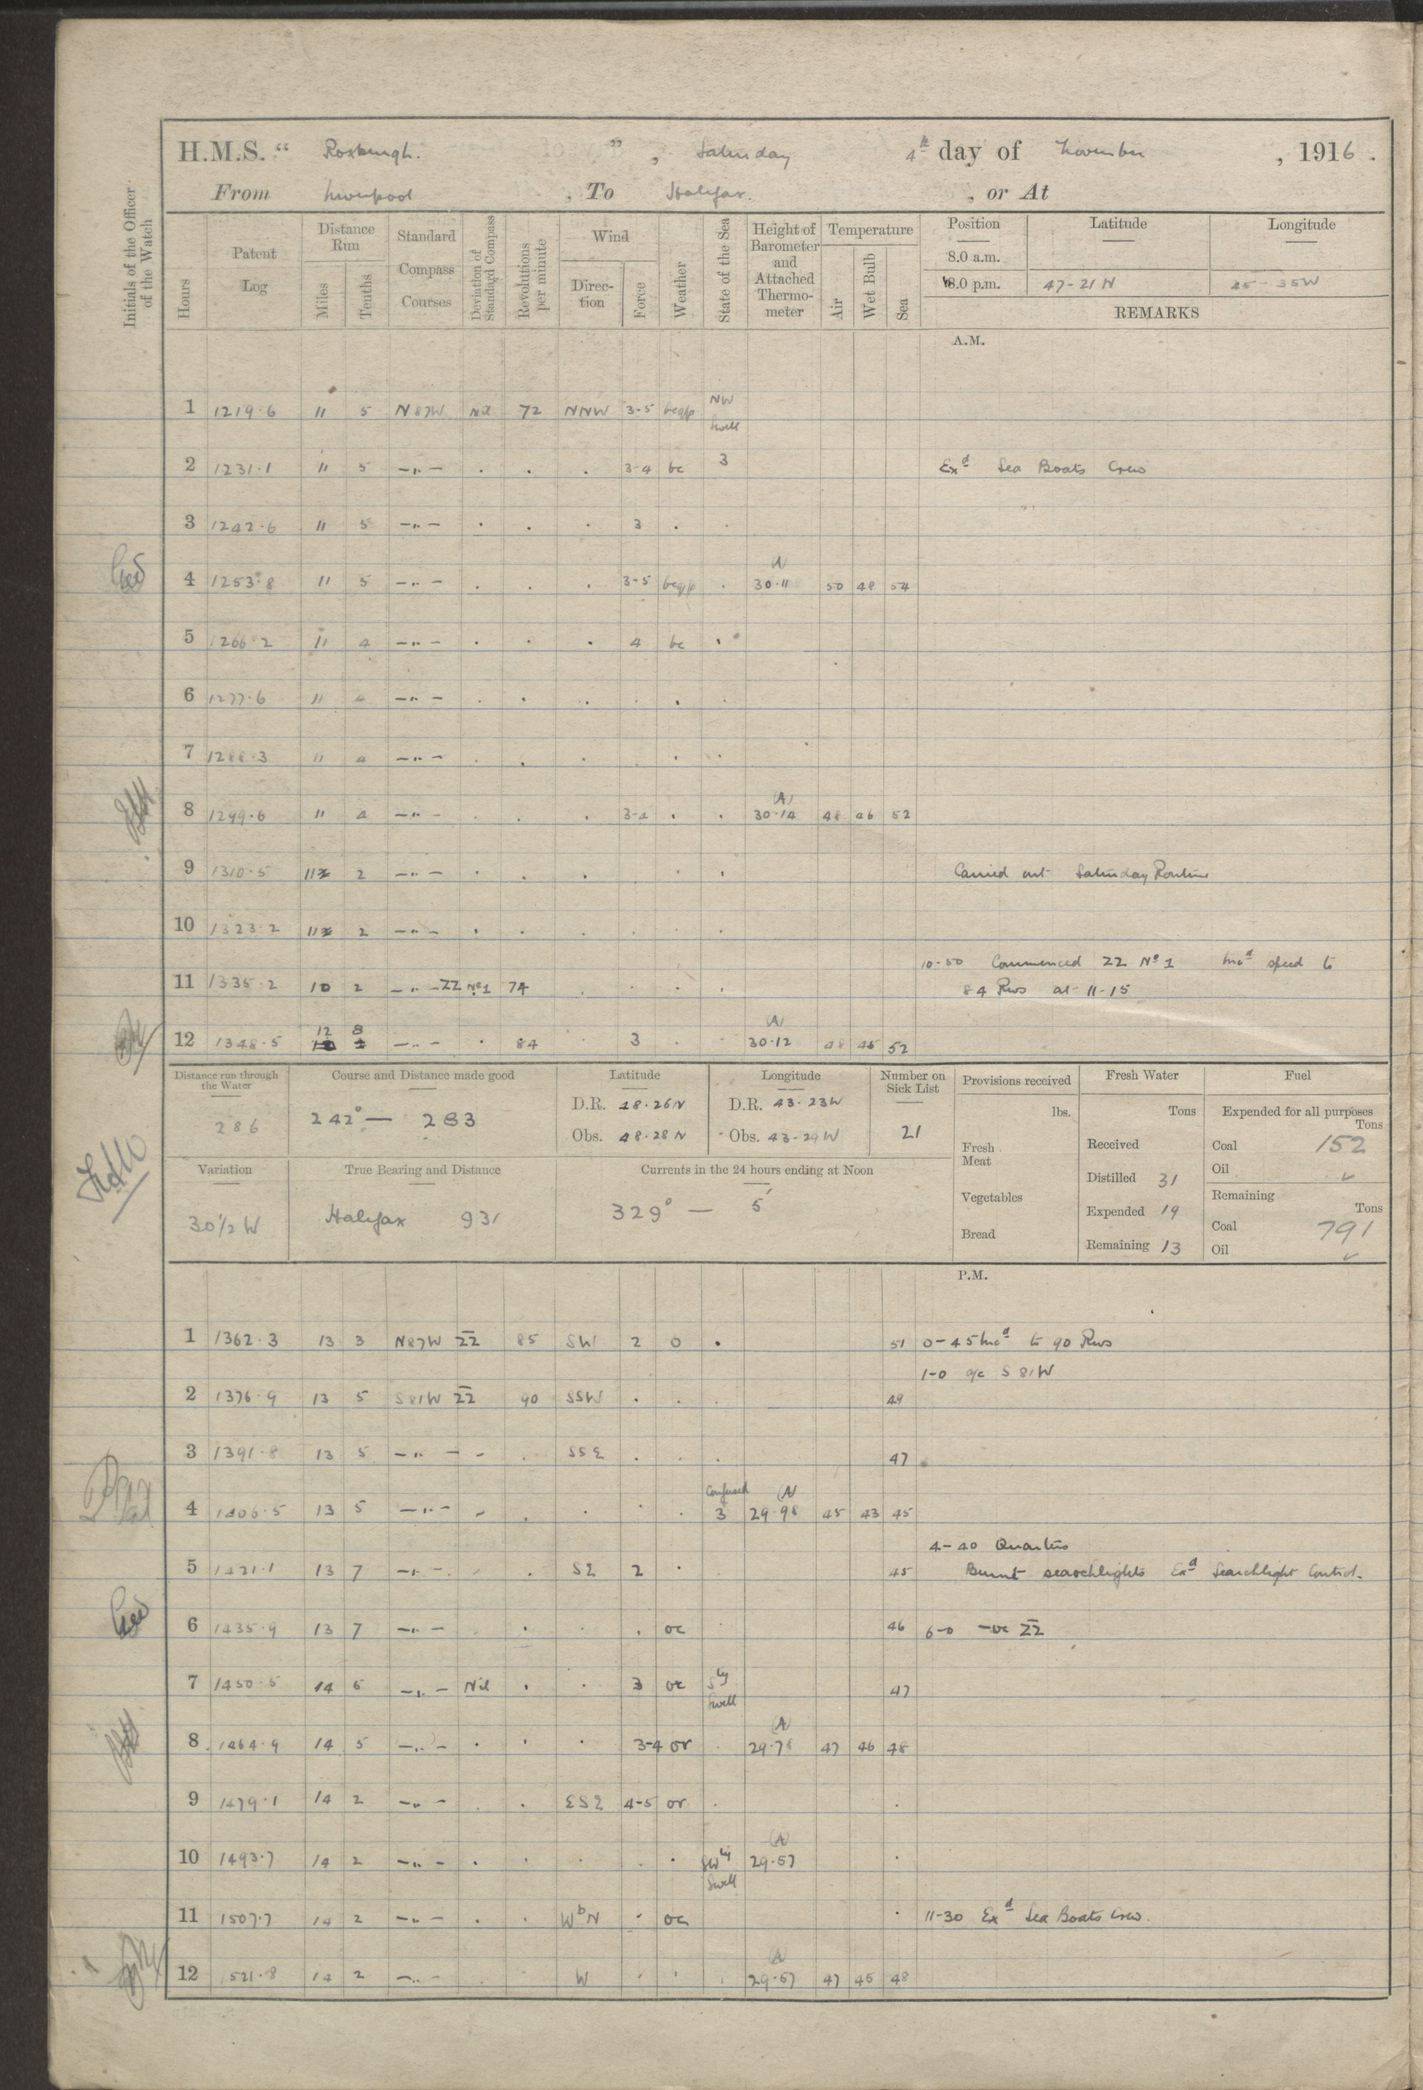 H.M.S. “ Roxburgh. ” , Saturday 4th day of November , 1916 .
From Liverpool , To Halifax. , or At
Initials of the Officer of the Watch
Hours
Patent Log
Distance Run
Miles
Tenths
Standard Compass Courses
Deviation of Standard Compass
Revolutions per minute
Wind
Direction
Force
Weather
State of the Sea
Height of Barometer and Attached Thermometer
Temperature
Air
Wet Bulb
Sea
Position Latitude Longitude
8.0 a.m.
8.0 p.m. 47-21 N 45-35W
REMARKS
A.M.
1 1219.6 11 5 N87W Nil 72 NNW 3-5 bcqp NW Swell
2 1231.1 11 5 -"- . . . 3-4 bc 3 Exd Sea Boats Crew
3 1242.6 11 5 -"- . . . 3 . .
4 1253.8 11 5 -"- . . . 3-5 bcqp . 30.11 50 48 54
5 1266.2 11 4 -"- . . . 4 bc .
6 1277.6 11 4 -"- . . . . . .
7 1288.3 11 4 -"- . . . . . .
8 1299.6 11 4 -"- . . . 3-4 . . 30.14 48 46 52
9 1310.5 11 2 -"- . . . . . . Carried out Saturday Routine
10 1323.2 11 2 -"- . . . . . .
10-50 Commenced ZZ No 1 Incd speed to
11 1335.2 10 2 -"- ZZ No1 74 . . . . 84 Revs at 11-15
12 1348.5 12 8 -"- . 84 . 3 . . 30.12 48 45 52
Distance run through the Water Course and Distance made good Latitude Longitude Number on Sick List Provisions received Fresh Water Fuel
286 242° — 283 D.R. 48.26N D.R. 43.23W lbs. Tons Expended for all purposes Tons
Obs. 48.28N Obs. 43-29W 21 Fresh Meat Received Coal 152
Oil
Variation True Bearing and Distance Currents in the 24 hours ending at Noon Distilled 31 Remaining Tons
30½ W Halifax 931 329° — 5' Vegetables Expended 19 Coal 791
Bread Remaining 13 Oil
P.M.
1 1362.3 13 3 N87W ZZ 85 SW 2 0 . 51 0-45 Incd to 90 Revs
1-0 a/c S 81W
2 1376.9 13 5 S81W ZZ 90 SSW . . . 49
3 1391.8 13 5 -"- - . SSE . . . 47
4 1406.5 13 5 -"- - . . . . Confused 3 29.98 45 43 45
4-40 Quarters
5 1421.1 13 7 -"- . . SE 2 . . 45 Burnt searchlights Exd Searchlight Control.
6 1435.9 13 7 -"- . . . . oc . 46 6-0 -oc ZZ
7 1450.5 14 6 -"- Nil . . 3 oc Sly Swell 47
8 1464.9 14 5 -"- . . . 3-4 or . 29.78 47 46 48
9 1479.1 14 2 -"- . . ESE 4-5 or . .
10 1493.7 14 2 -"- . . . . . SWly Swell 29.57 .
11 1507.7 14 2 -"- . . WbN . oc . 11-30 Exd Sea Boats Crew.
12 1521.8 14 2 -"- . . W . . . 29.57 47 45 48